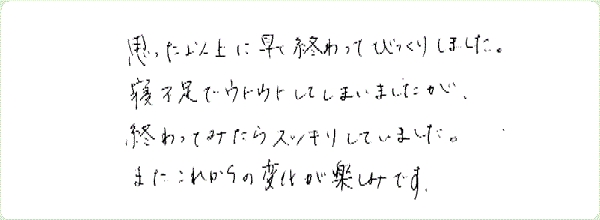 思った以上に早く終わってびっくりしました。
寝不足でウトウトしてしまいましたが、
終わってみたらスッキリしていました。
またこれからの変化が楽しみです。